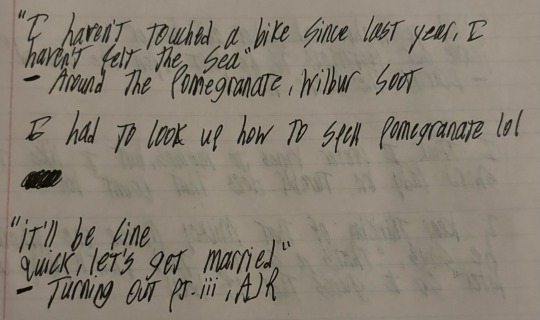 "I haven't touched a bike since last year, I
haven't felt the sea"
- Around the Pomegranate, Wilbur Soot
I had to look up how to spell pomegranate lol
"it'll be fine
quick, let's get married"
- Turning Out pt. iii, AJR